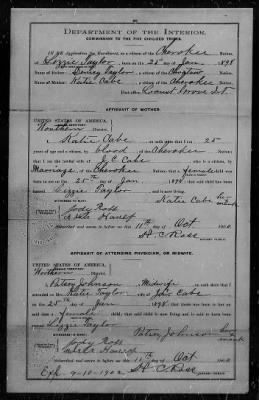 DEPARTMENT OF THE INTERIOR.
COMMISSION TO THE FIVE CIVILIZED TRIBES.
In re Application for Enrollment, as a citizen of the Cherokee Nation,
of Lizzie Taylor, born on the 25 day of Jan, 1898
Name of Father: Taylor a citizen of the Nation.
Name of Mother: Katie Cabe a citizen of the Cherokee Nation.
Post-office Locust Grove I.T.
AFFIDAVIT OF MOTHER.
UNITED STATES OF AMERICA,
INDIAN TERRITORY,
Northern District.
I, Katie Cabe, on oath state that I am 25
years of age and a citizen, by blood, of the Cherokee Nation;
that I am the lawful wife of J. C. Cabe, who is a citizen, by
Marriage, of the Cherokee Nation; that a female child was
born to me on 25th day of Jan, 1898; that said child has been
named Lizzie Taylor, and is now living.
Katie Cabe her mark
Jody Ross
Subscribed and sworn to before me this 11th day of Oct, 190
H. C. Ross
AFFIDAVIT OF ATTENDING PHYSICIAN, OR MIDWIFE.
UNITED STATES OF AMERICA,
INDIAN TERRITORY,
Northern District.
I, Betsy Johnson, a Midwife, on oath state that I
attended on Mrs. Katie Taylor, now Cabe
on the 25 day of Jan, 1898; that there was born to her on said
date a female child; that said child is now living and is said to have been
named Lizzie Taylor
Betsy Johnson her mark
Jody Ross
Subscribed and sworn to before me this 11th day of Oct, 190
H. C. Ross
Exp. 9-10-1902